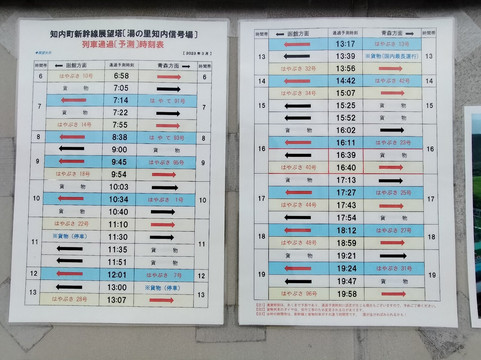 知内町新幹線展望塔[湯の里知内信号場]
列車通過[予測]時刻表
時間帯 函館方面 通過予測時刻 青森方面 時間帯
6 はやぶさ 10号 6:58 6
7:05 貨 物
7 7:14 はやて 91号 7
貨 物 7:22
はやぶさ 14号 7:55
8 8:38 はやて 93号 8
9:00 貨 物
9 9:45 はやぶさ 95号 9
はやぶさ 18号 9:54
貨 物 10:03
10 10:34 はやぶさ 1号 10
10:40 貨 物
はやぶさ 22号 11:10
11 ※貨物(停車) 11:30 11
11:35 貨物
11:51 貨 物
12 12:01 はやぶさ 7号 12
13:00 ※貨物(停車)
13 はやぶさ 28号 13:07 13
時間帯 函館方面 通過予測時刻 青森方面 時間帯
13:17 はやぶさ 13号
13 13:39 13
はやぶさ 32号 13:56 貨物
14 14:42 14
はやぶさ 34号 15:07
15 15:25 貨物 15
貨 物 15:52
貨 物 16:02
16 16:11 はやぶさ 23号 16
16:39 貨物
はやぶさ 40号 16:40
貨 物 17:13
17 17:27 はやぶさ 25号 17
はやぶさ 44号 17:43
17:54 貨物
18 18:12 はやぶさ 27号 18
はやぶさ 48号 18:59
貨 物 19:21
19 19:24 はやぶさ 31号 19
19:47 貨物
19:58